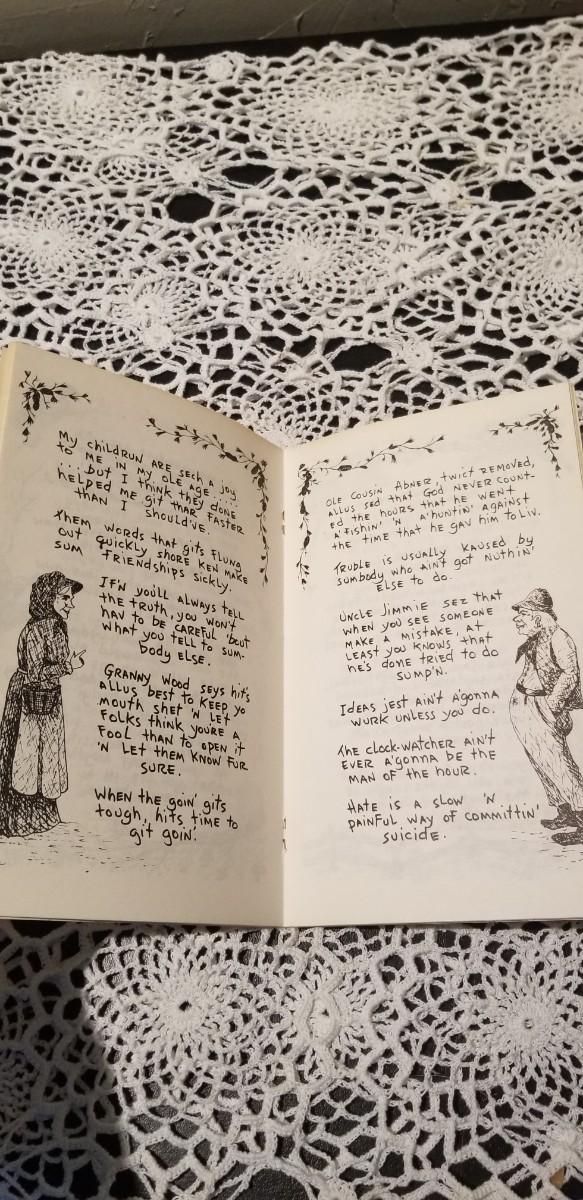 My childrun are sech a joy
to me in my ole age....
...but I think they done
helped me git thar faster
than I should've.
Them words that gits flung
out quickly shore ken make
sum friendships sickly.
If'n you'll always tell
the truth, you won't
hav to be careful 'bout
what you tell to sum-
body else.
Granny Wood seys hit's
allus best to keep yo
mouth shet 'n let
folks think you're a
fool than to open it
'n let them know fur
sure.
When the goin' gits
tough, hits time to
git goin'.
Ole Cousin Abner, twict removed,
allus sed that God never count-
ed the hours that he went
a'fishin' 'n a'huntin' against
the time that he gav him to liv.
Truble is usually kaused by
sumbody who ain't got nuthin'
else to do.
Uncle Jimmie sez that
when you see someone
make a mistake, at
least you knows that
he's done tried to do
sump'n.
Ideas jest ain't a'gonna
wurk unless you do.
The clock-watcher ain't
ever a'gonna be the
man of the hour.
Hate is a slow 'n
painful way of committin'
suicide.